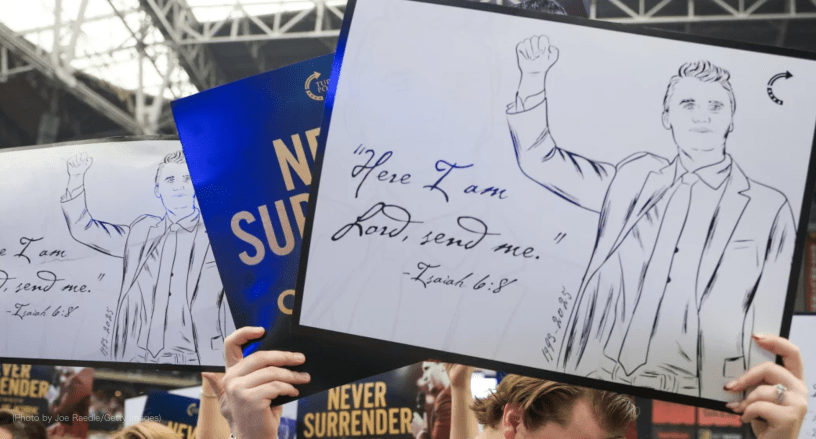 "Here I am
Lord, send me."
-Isaiah 6:8
1993-2025
e I am
, send me."
-Isaiah 6:8
1993-2025
NE
SUR
VER
ENDER
NEVER
SURRENDER
(Photo by Joe Raedle/Getty Images)